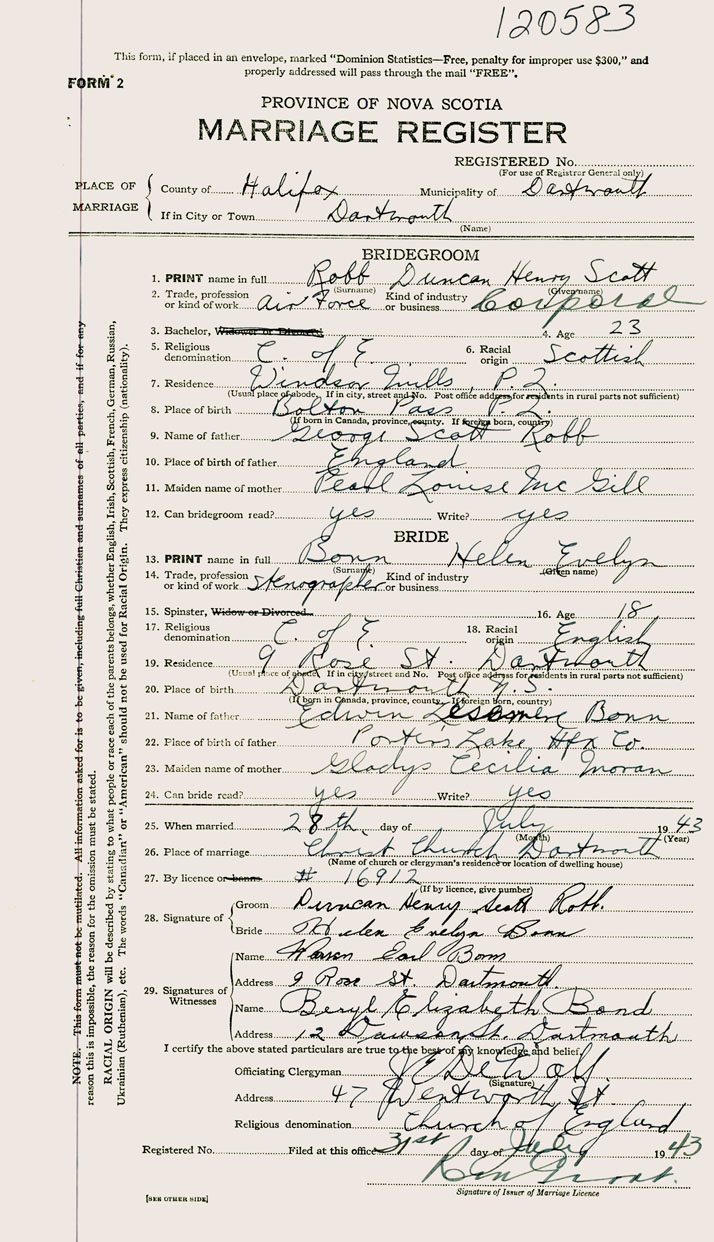 120583
This form, if placed in an envelope, marked "Dominion Statistics—Free, penalty for improper use $300," and
properly addressed will pass through the mail "FREE".
FORM 2
PROVINCE OF NOVA SCOTIA
MARRIAGE REGISTER
REGISTERED No.
(For use of Registrar General only)
PLACE OF MARRIAGE
County of Halifax Municipality of Dartmouth
If in City or Town Dartmouth
(Name)
BRIDEGROOM
1. PRINT name in full Robb Duncan Henry Scott
(Surname) (Given name)
2. Trade, profession or kind of work Air Force Kind of industry or business Corporal
3. Bachelor, Widower or Divorced 4. Age 23
5. Religious denomination C. of E. 6. Racial origin Scottish
7. Residence Windsor Mills, P.Q.
(Usual place of abode. If in city, street and No. Post office address for residents in rural parts not sufficient)
8. Place of birth Bolton Pass P.Q.
(If born in Canada, province, county. If foreign born, country)
9. Name of father George Scott Robb
10. Place of birth of father England
11. Maiden name of mother Pearl Louise Mc Gill
12. Can bridegroom read? yes Write? yes
BRIDE
13. PRINT name in full Bonn Helen Evelyn
(Surname) (Given name)
14. Trade, profession or kind of work stenographer Kind of industry or business
15. Spinster, Widow or Divorced 16. Age 18
17. Religious denomination C. of E. 18. Racial origin English
19. Residence 9 Rose St. Dartmouth
(Usual place of abode. If in city/street and No. Post office address for residents in rural parts not sufficient)
20. Place of birth Dartmouth N.S.
(If born in Canada, province, county. If foreign born, country)
21. Name of father Edwin Bonn
22. Place of birth of father Porters Lake Hfx Co.
23. Maiden name of mother Gladys Cecilia Moran
24. Can bride read? yes Write? yes
25. When married 28th day of July 1943
(Month) (Year)
26. Place of marriage Christ Church Dartmouth
(Name of church or clergyman's residence or location of dwelling house)
27. By licence or banns # 16912
(If by licence, give number)
28. Signature of
Groom Duncan Henry Scott Robb.
Bride Helen Evelyn Bonn
29. Signatures of Witnesses
Name Earl Bonn
Address 9 Rose St. Dartmouth.
Name Beryl Elizabeth Bond
Address 12 Dawson St. Dartmouth
I certify the above stated particulars are true to the best of my knowledge and belief.
Officiating Clergyman DeWolf
(Signature)
Address 47 Wentworth St
Religious denomination Church of England
Registered No. Filed at this office 31st day of July 1943
Signature of Issuer of Marriage Licence
[SEE OTHER SIDE]
NOTE. This form must not be mutilated. All information asked for is to be given, including full Christian and surnames of all parties, and if for any
reason this is impossible, the reason for the omission must be stated.
RACIAL ORIGIN will be described by stating to what people or race each of the parents belongs, whether English, Irish, Scottish, French, German, Russian,
Ukrainian (Ruthenian), etc. The words "Canadian" or "American" should not be used for Racial Origin. They express citizenship (nationality).